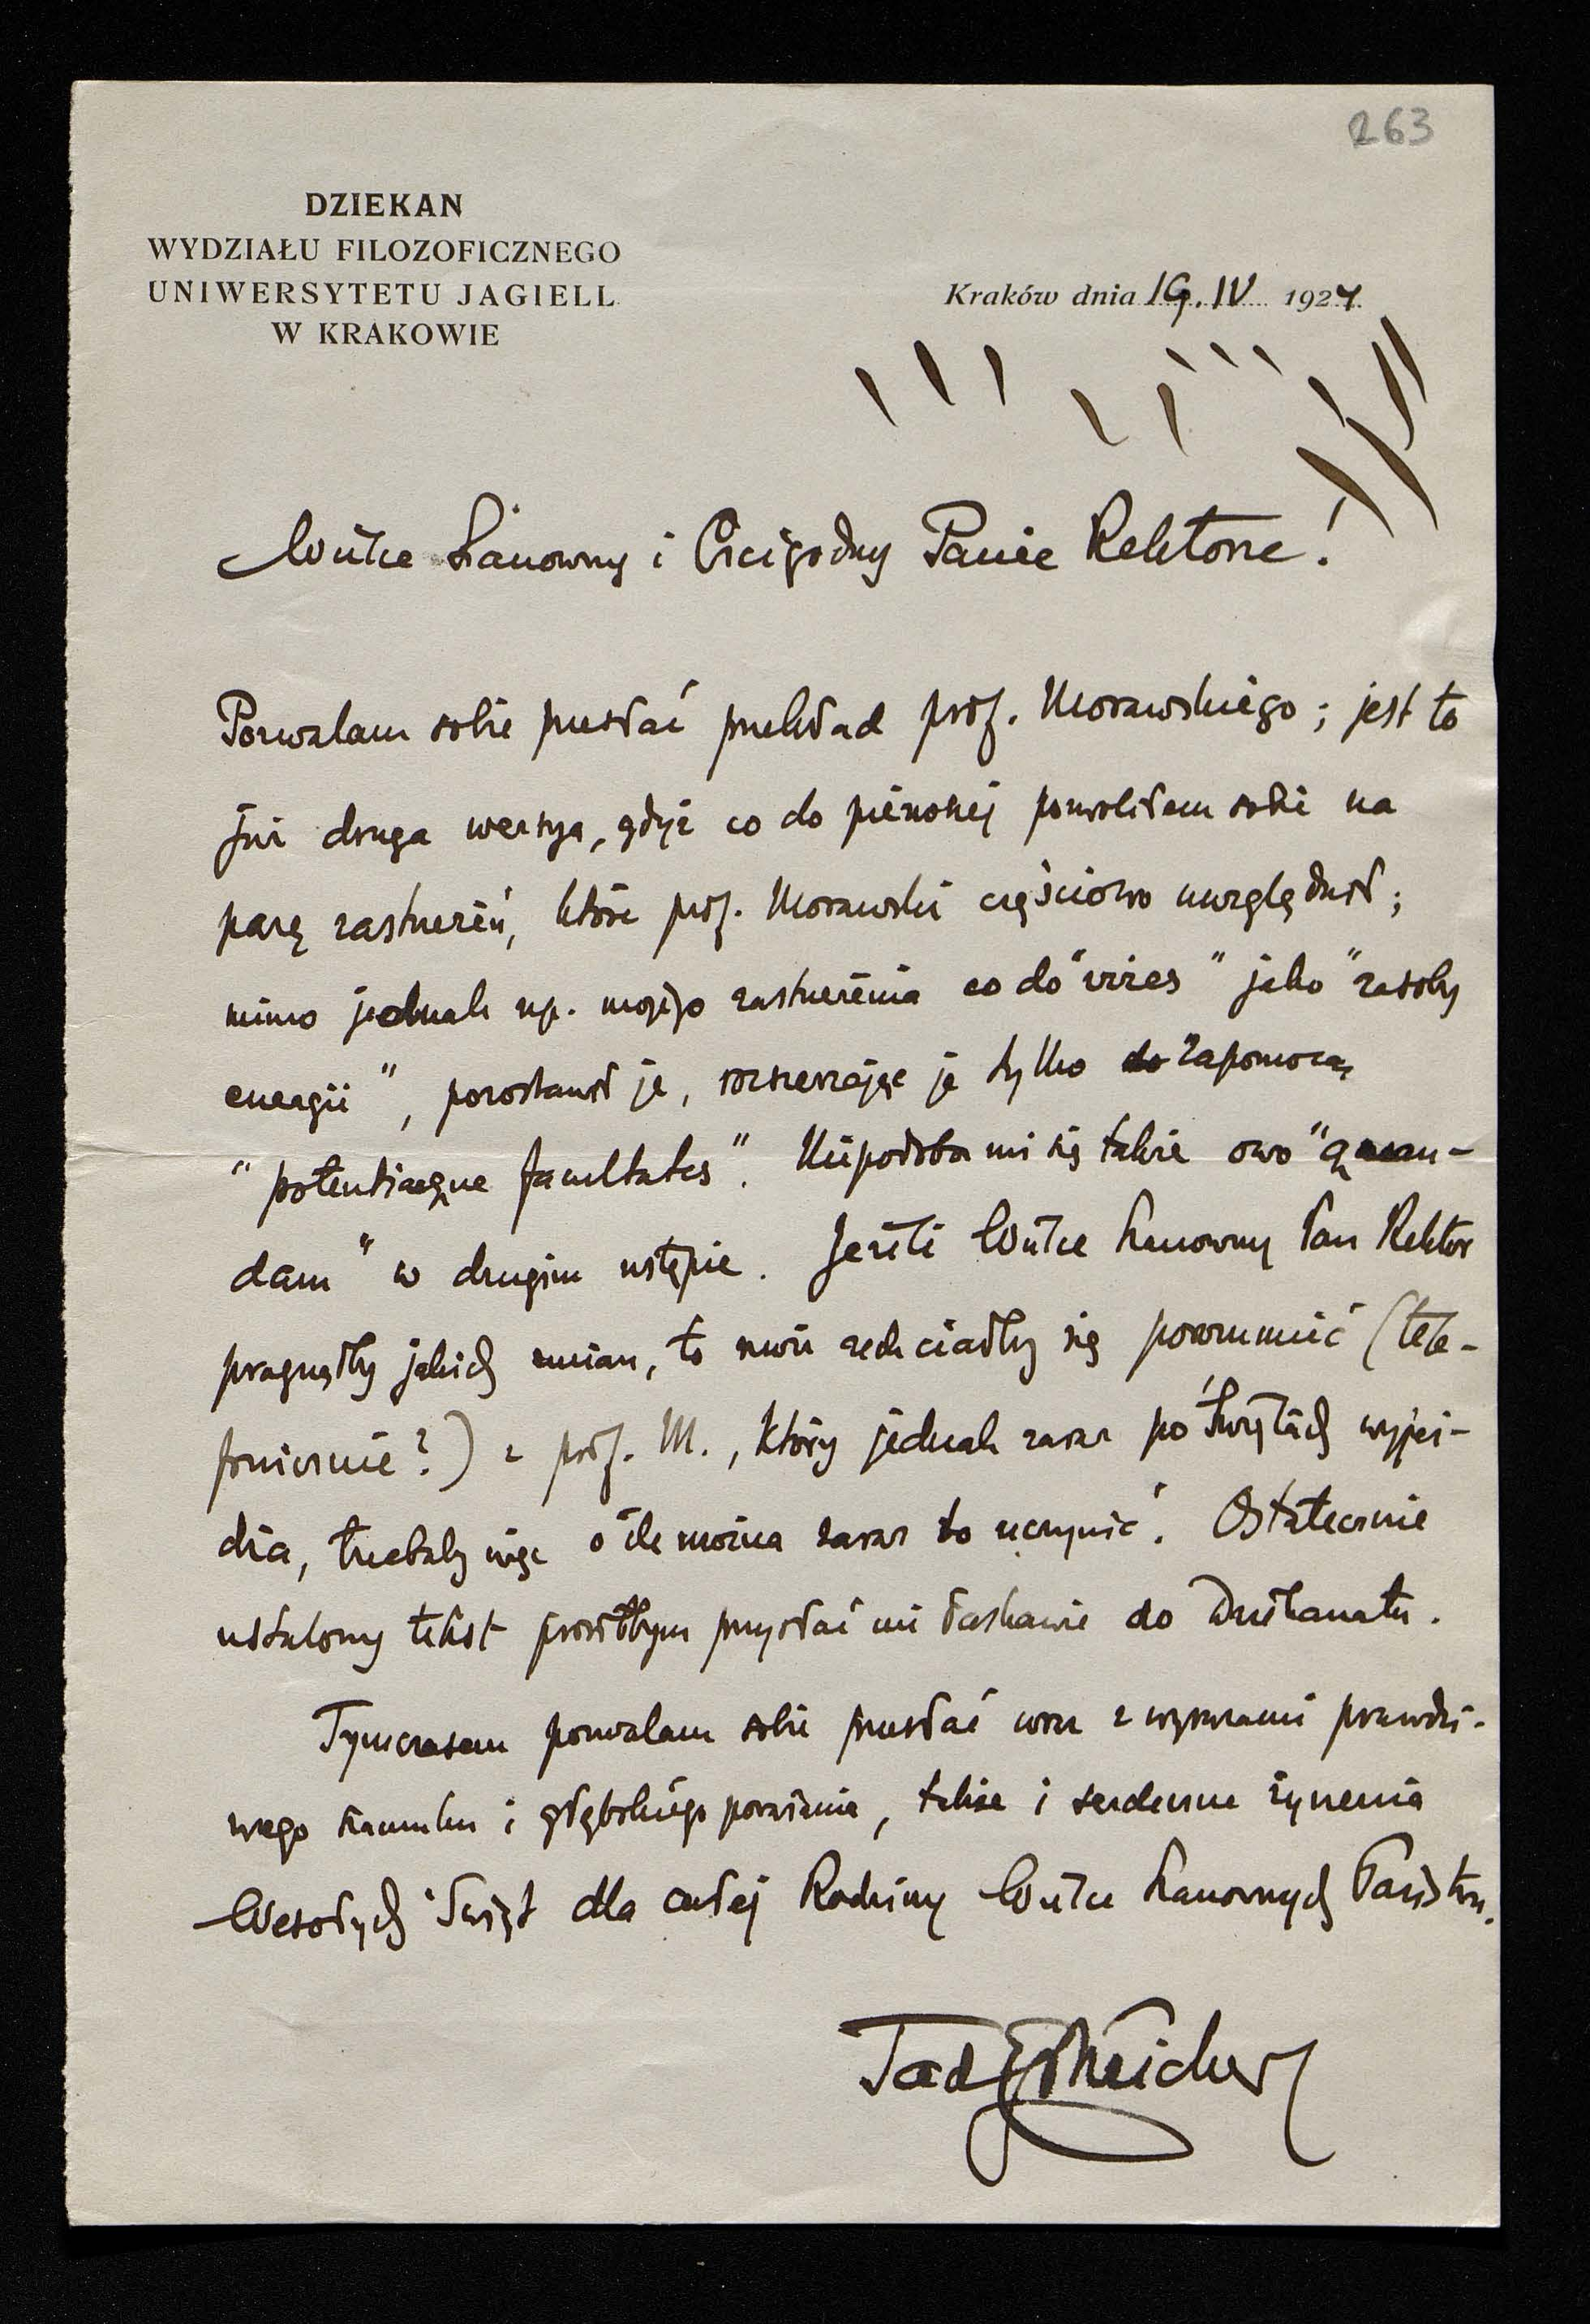 263
DZIEKAN
WYDZIAŁU FILOZOFICZNEGO
UNIWERSYTETU JAGIELL.
W KRAKOWIE
Kraków dnia 19. IV 1924.
Wielce Szanowny i Czcigodny Panie Rektorze!
Pozwalam sobie przesłać przekład prof. Morawskiego; jest to
już druga wersya, gdyż co do pierwszej pozwoliłem sobie na
parę zastrzeżeń, które prof. Morawski częściowo uwzględnił;
mimo jednak np. mojego zastrzeżenia co do "vires" jako "zasoby
energii", pozostawił je, rozszerzając je tylko do zapomocą
"potentiaeque facultates". Nie podoba mi się także owo "quan-
dam" w drugim ustępie. Jeżeli Wielce Szanowny Pan Rektor
pragnąłby jakich zmian, to może zechciałby się porozumieć (tele-
fonicznie?) z prof. M., który jednak zaraz po Świętach wyjeż-
dża, trzebaby więc o ile można zaraz to uczynić. Ostatecznie
ustalony tekst prosiłbym przysłać mi łaskawie do Dziekanatu.
Tymczasem pozwalam sobie przesłać wraz z wyrazami prawdzi-
wego szacunku i głębokiego poważania, także i serdeczne życzenia
Wesołych Świąt dla całej Rodziny Wielce Szanownych Państwa.
Tad Estreicher